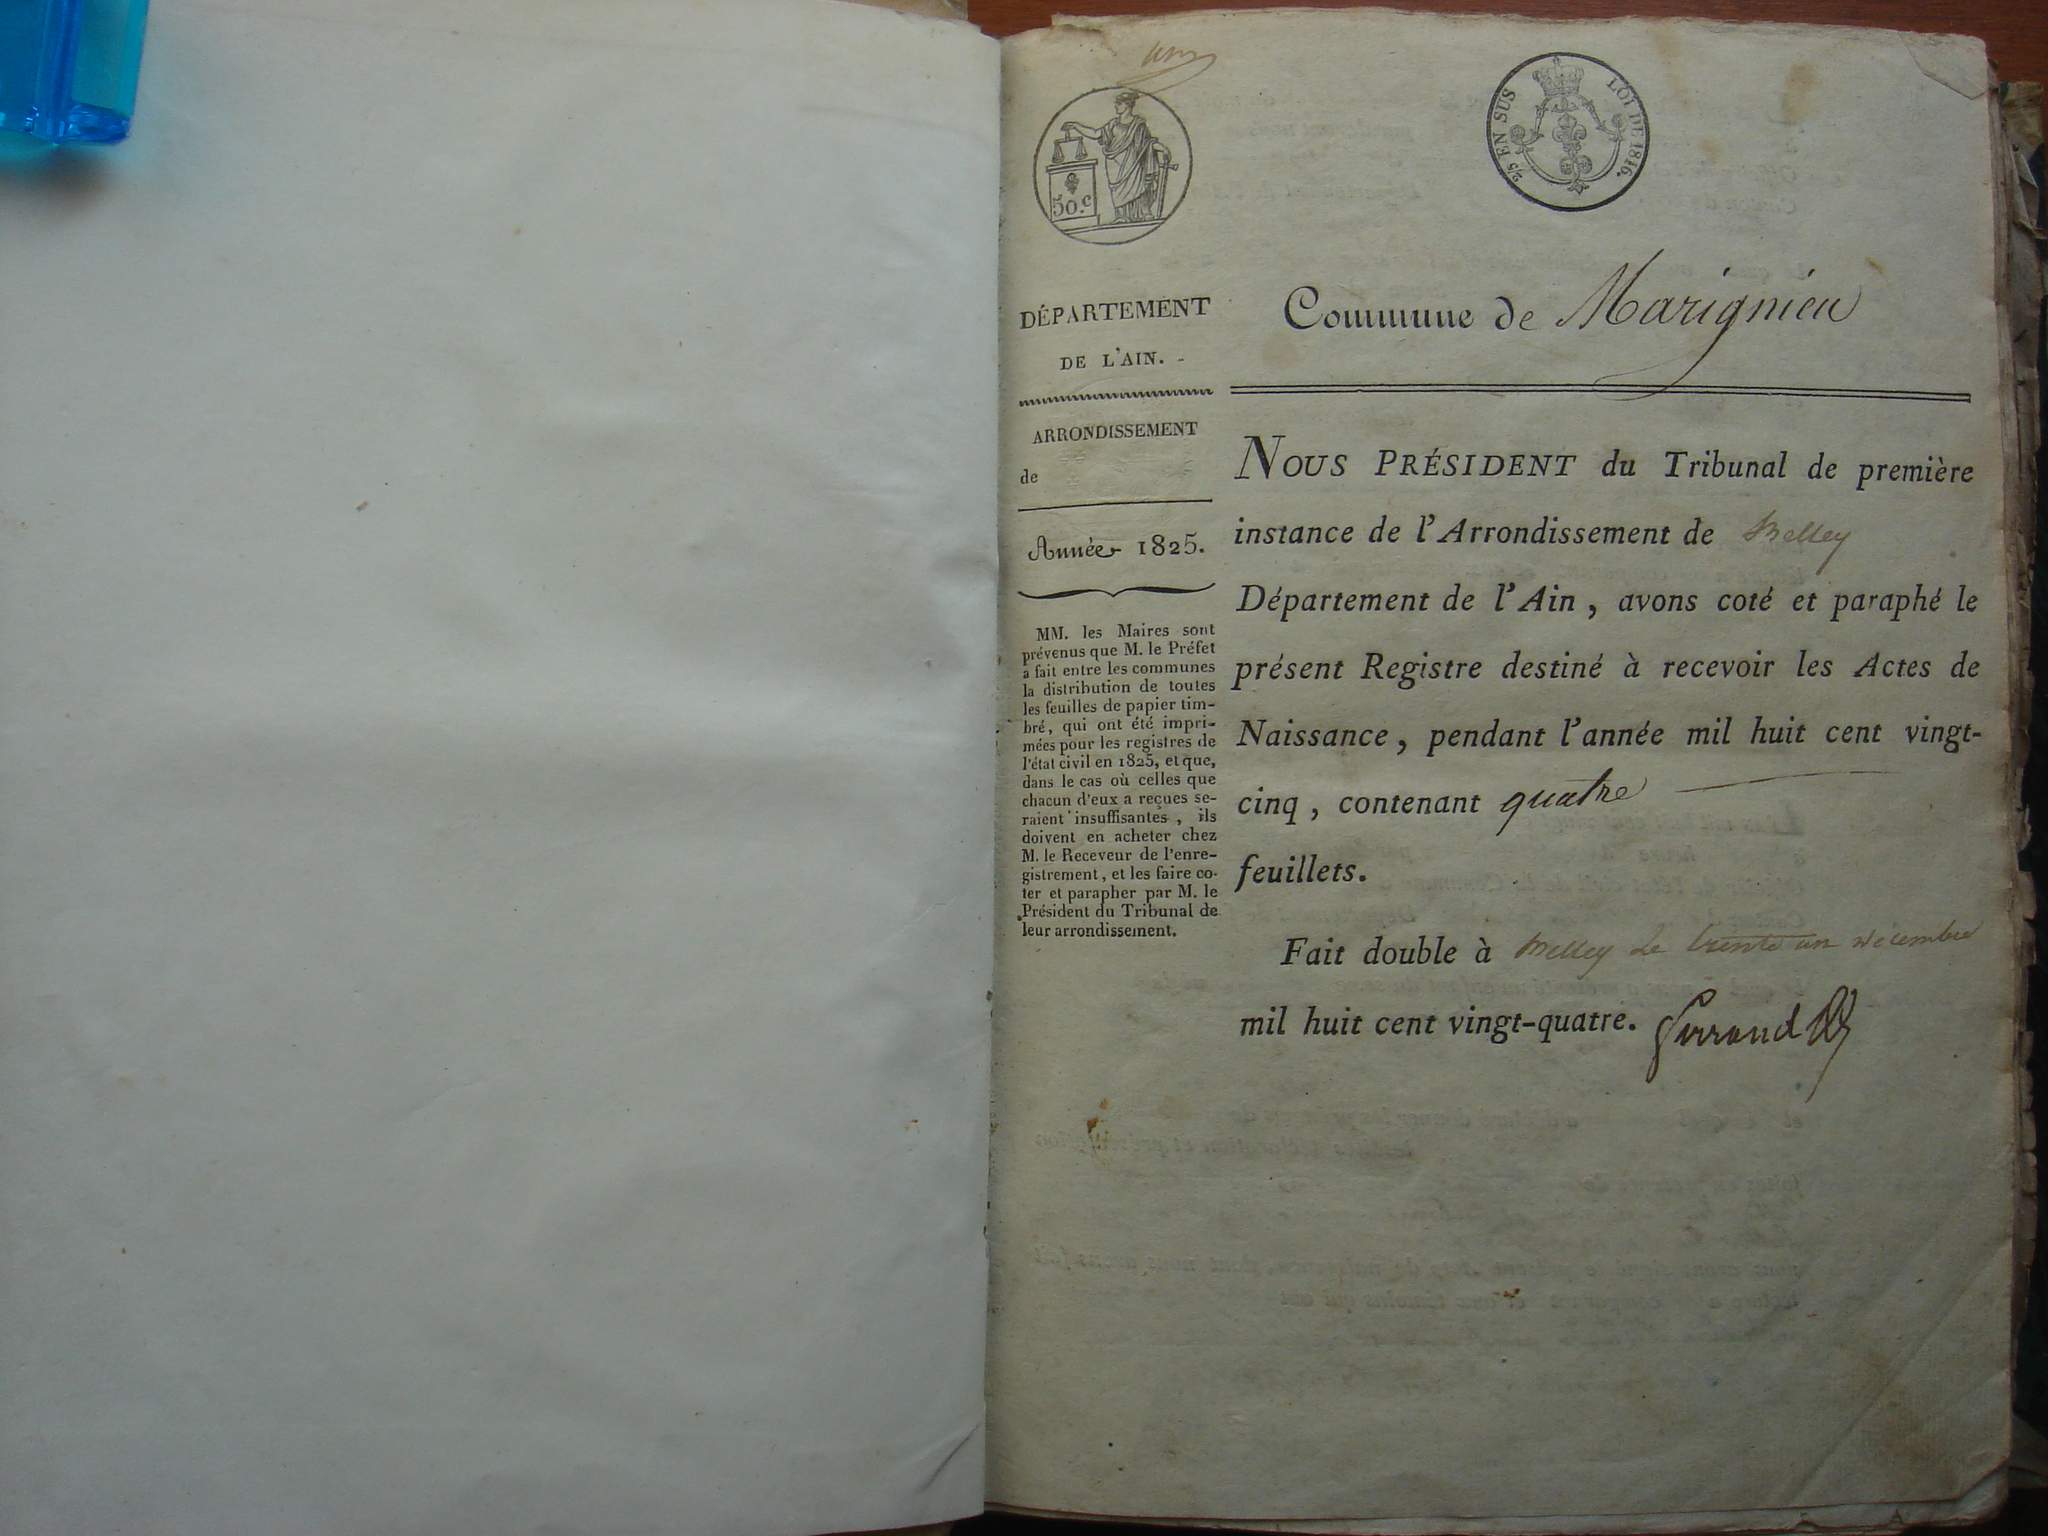 50.c
2/5 EN SUS
LOI DE 1816.
DÉPARTEMENT
DE L'AIN.
ARRONDISSEMENT
de
Année 1825.
MM. les Maires sont
prévenus que M. le Préfet
a fait entre les communes
la distribution de toutes
les feuilles de papier tim-
bré, qui ont été impri-
mées pour les registres de
l'état civil en 1825, et que,
dans le cas où celles que
chacun d'eux a reçues se-
raient insuffisantes, ils
doivent en acheter chez
M. le Receveur de l'enre-
gistrement, et les faire co-
ter et parapher par M. le
Président du Tribunal de
leur arrondissement.
Commune de Marignieu
NOUS PRÉSIDENT du Tribunal de première
instance de l'Arrondissement de Belley
Département de l'Ain, avons coté et paraphé le
présent Registre destiné à recevoir les Actes de
Naissance, pendant l'année mil huit cent vingt-
cinq, contenant quatre
feuillets.
Fait double à Belley le trente un décembre
mil huit cent vingt-quatre.